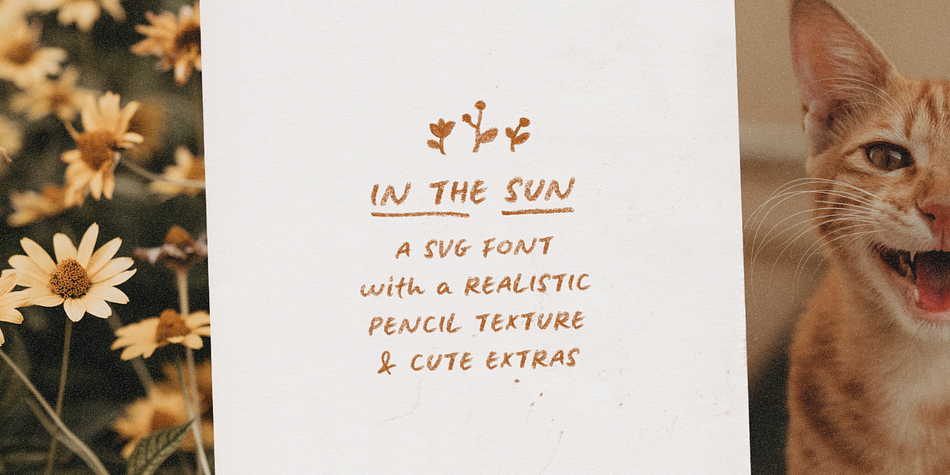 IN THE SUN
A SVG FONT
with a REALISTIC
PENCIL TEXTURE
& CUTE EXTRAS